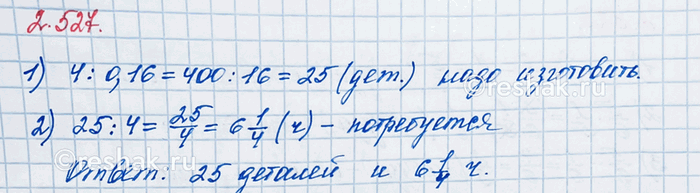 2.527.
1) 4 : 0,16 = 400 : 16 = 25 (дет.) надо изготовить.
2) 25 : 4 = 25/4 = 6 1/4 (ч) – потребуется
Ответ: 25 деталей и 6 1/4 ч.
reshak.ru